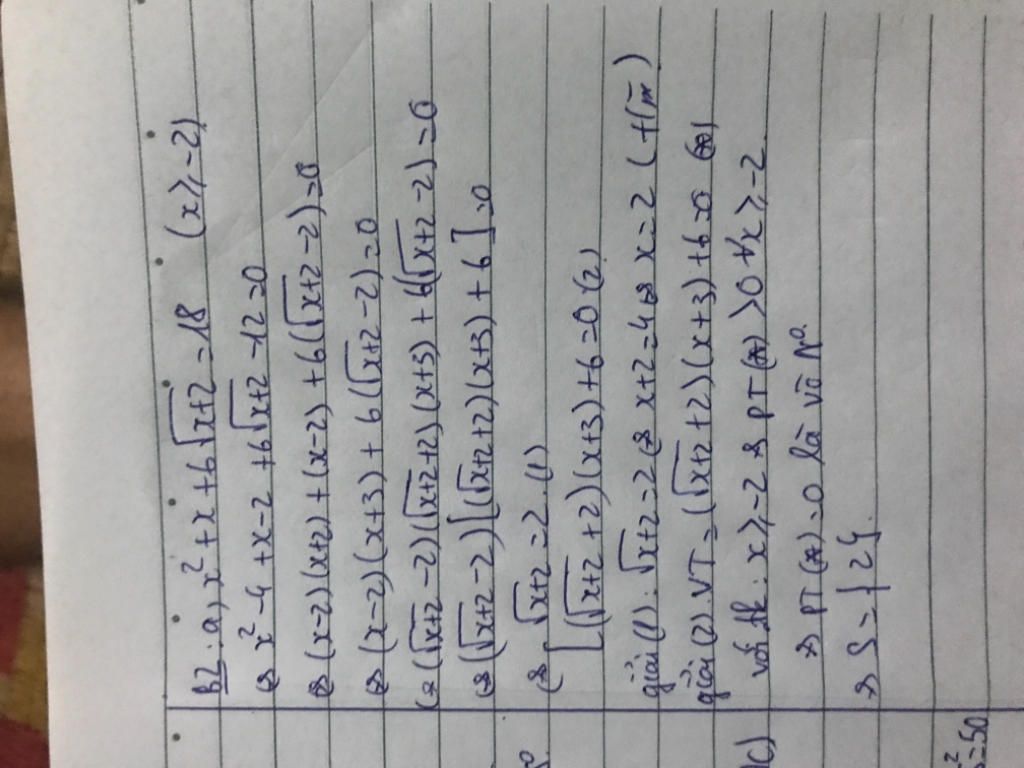 B2: a, x² + x + 6√(x+2) = 18 (x ≥ -2)
⇔ x² - 4 + x - 2 + 6√(x+2) - 12 = 0
⇔ (x-2)(x+2) + (x-2) + 6(√(x+2) - 2) = 0
⇔ (x-2)(x+3) + 6(√(x+2) - 2) = 0
⇔ (√(x+2) - 2)(√(x+2) + 2)(x+3) + 6(√(x+2) - 2) = 0
⇔ (√(x+2) - 2)[(√(x+2) + 2)(x+3) + 6] = 0
⇔ [ √(x+2) = 2 (1)
(√(x+2) + 2)(x+3) + 6 = 0 (2)
giải (1): √(x+2) = 2 ⇔ x+2 = 4 ⇔ x = 2 (t/m)
giải (2). VT = (√(x+2) + 2)(x+3) + 6 = 0 (*)
với đk: x ≥ -2 ⇒ PT (*) > 0 ∀x ≥ -2
⇒ PT (*) = 0 là vô N⁰.
⇒ S = {2}.
c)
² = 50